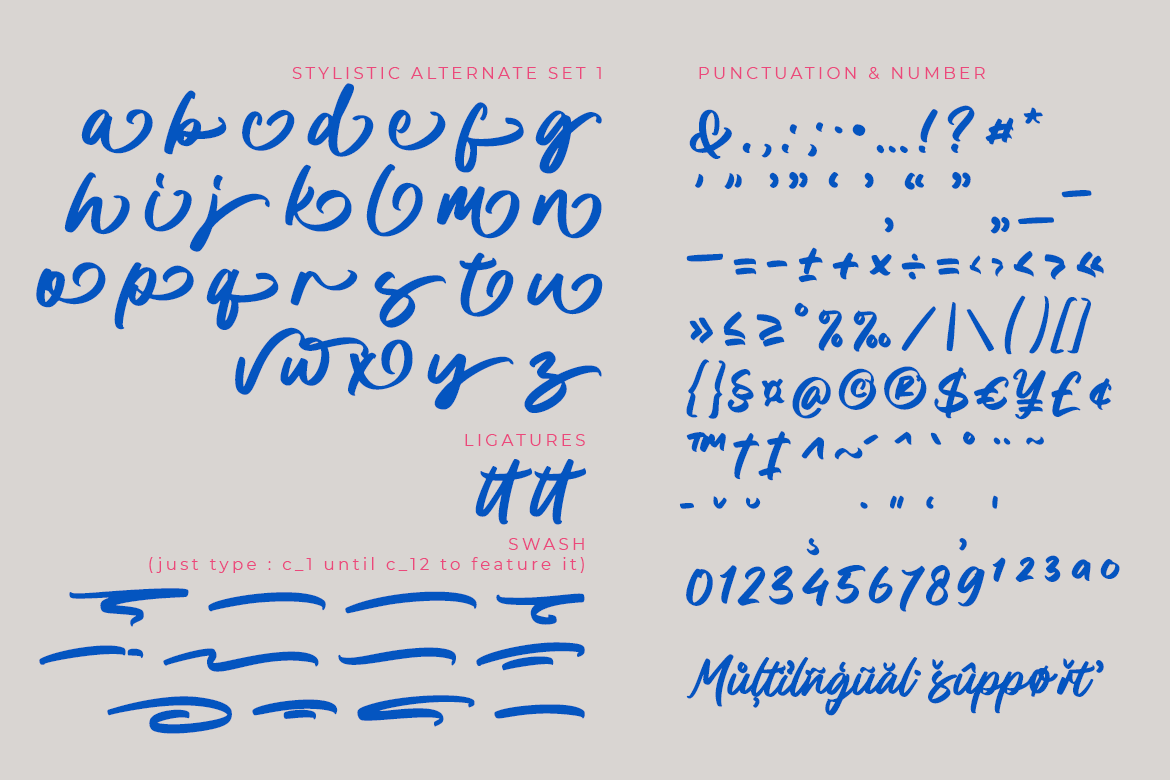 STYLISTIC ALTERNATE SET 1
a b c d e f g
h i j k l m n
o p q r s t u
v w x y z
LIGATURES
tt tt
SWASH
(just type : c_1 until c_12 to feature it)
PUNCTUATION & NUMBER
& . , : ; · • … ! ? # *
' " ’ ” ‘ ’ “ ”
‚ „ — –
— = - ± + × ÷ = ‹ › < > «
» ≤ ≥ ° % ‰ / | \ ( ) [ ]
{ } § ¤ @ © ® $ € ¥ £ ¢
™ † ‡ ^ ~ ´ ^ ` ° ¨ ~
0 1 2 3 4 5 6 7 8 9 ¹ ² ³ ª º
Můļtïlñģüăl· šûppøřť